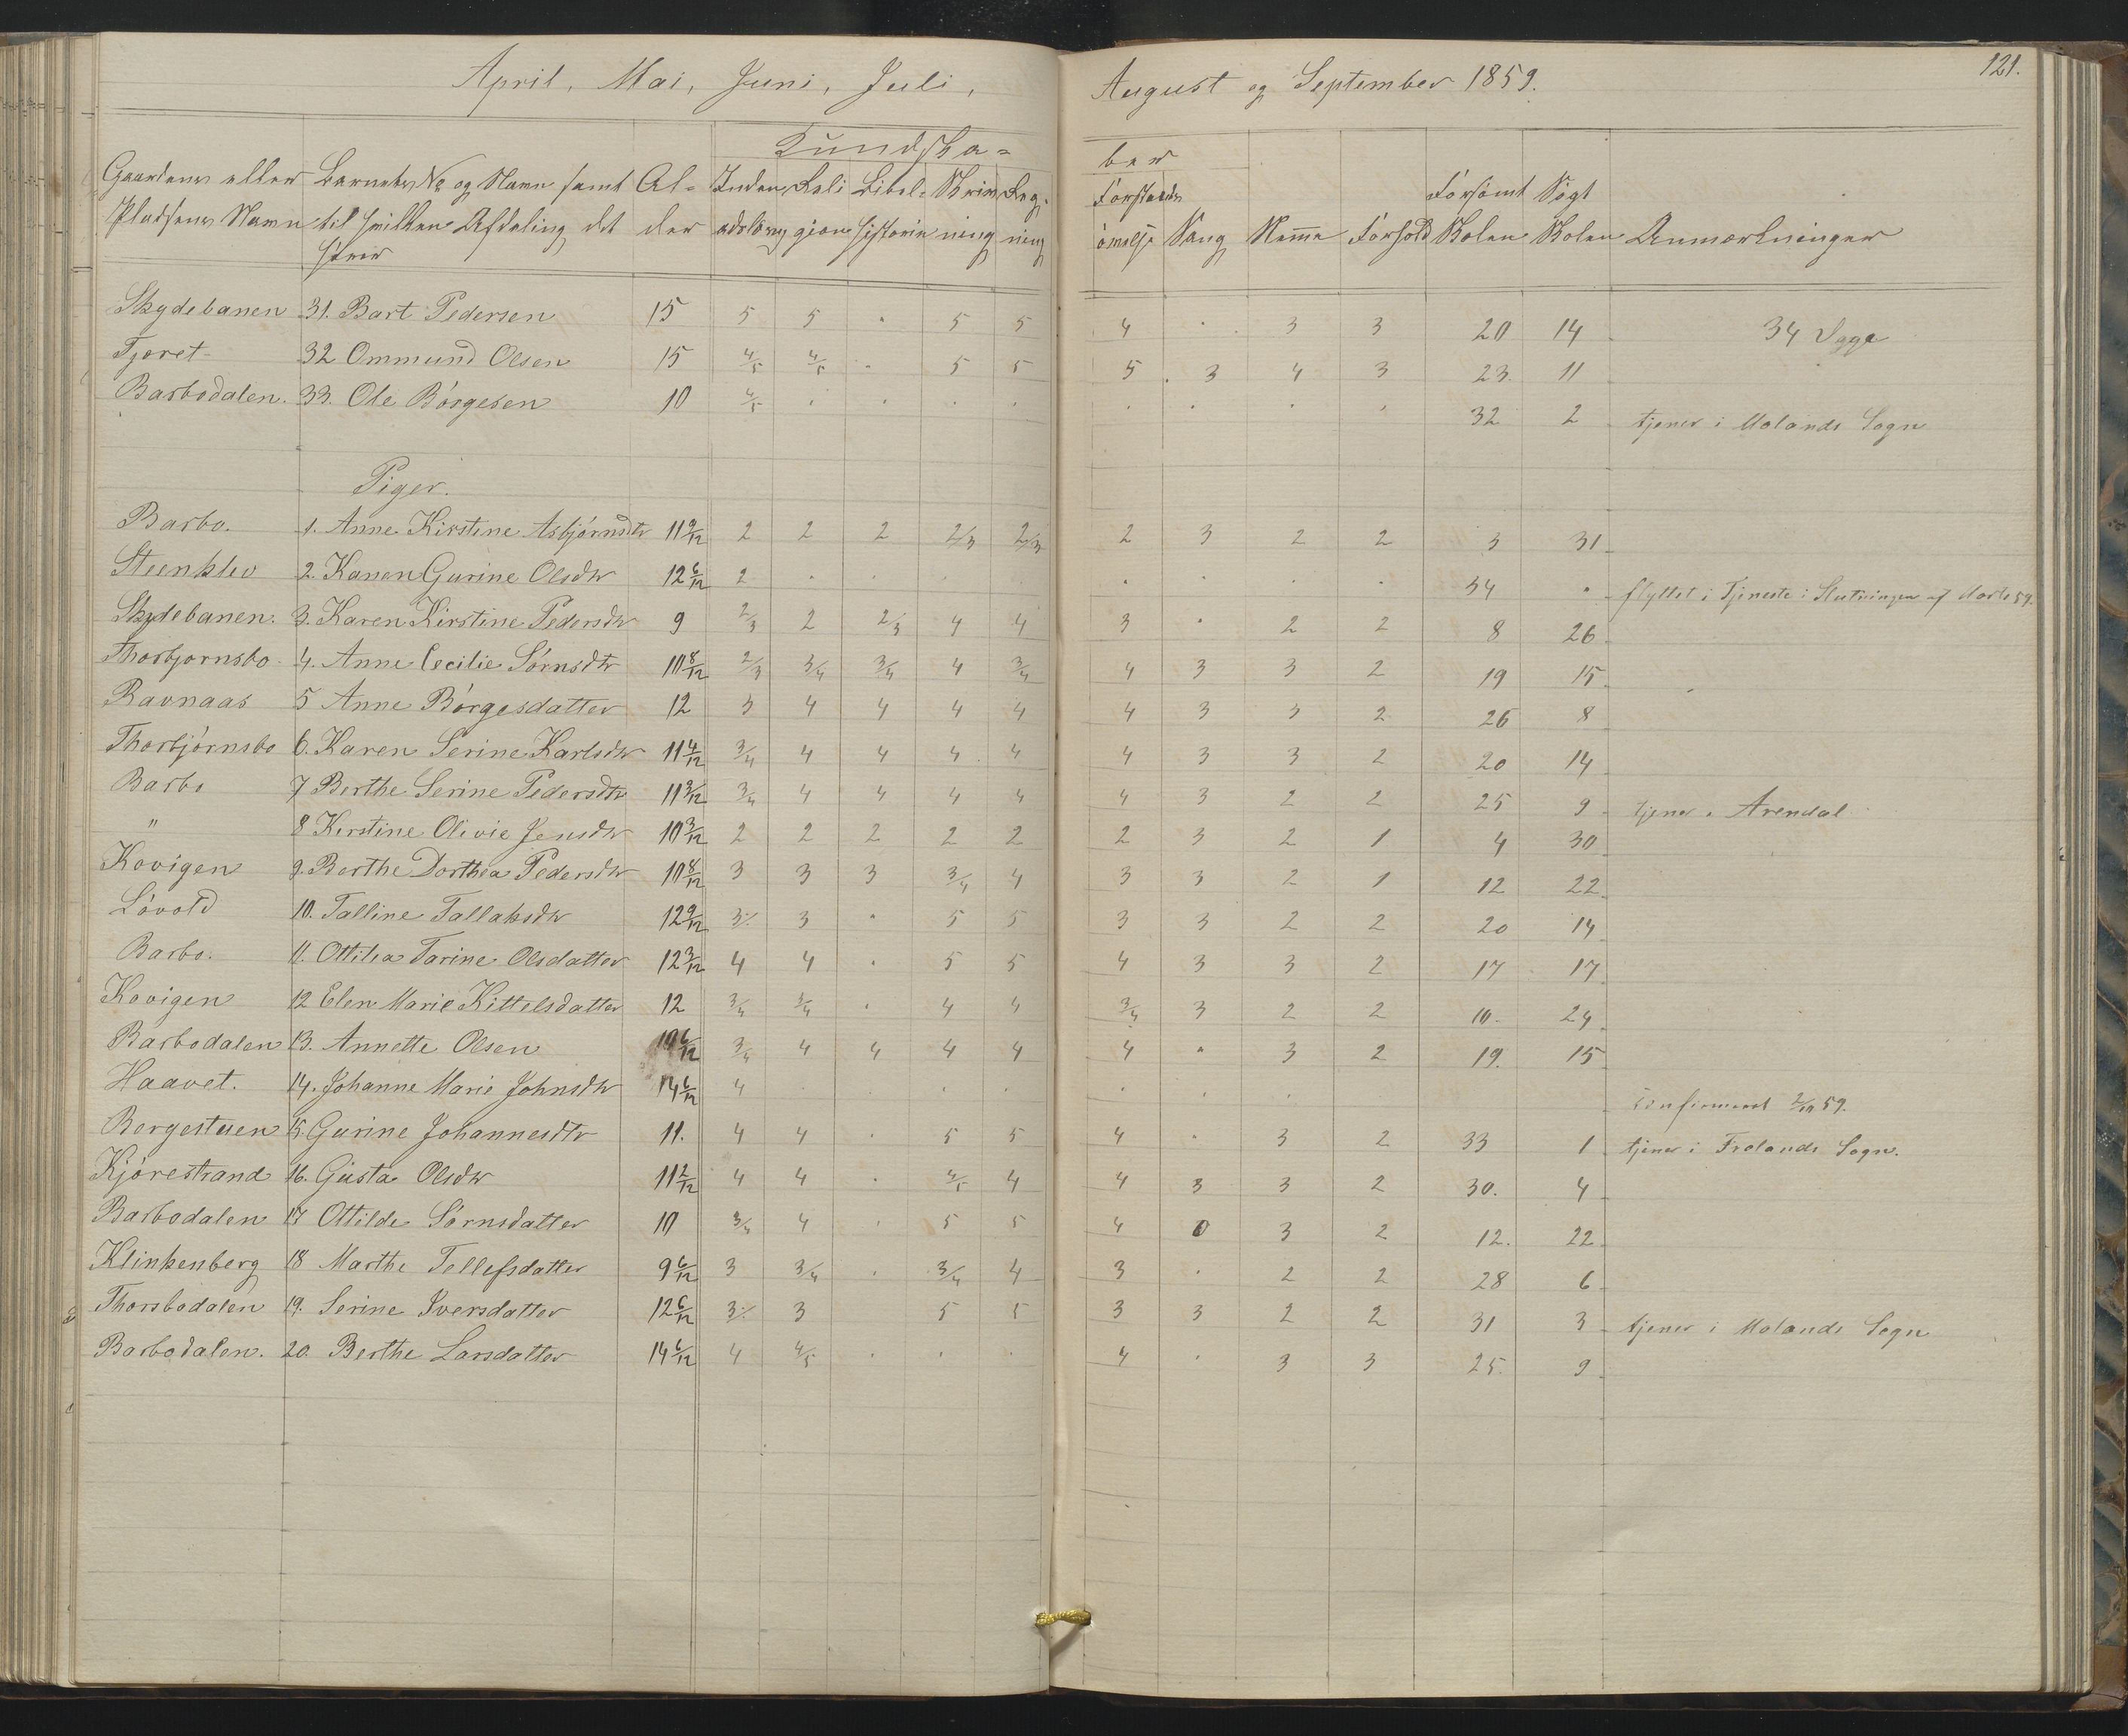 April, Mai, Juni, Juli,
August og September 1859.
121.
Kundska=
ber
Gaardens eller Pladsens Navn
Barnets No og Navn samt til hvilken Afdeling det hører
Al= der
Inden adslæsn
Reli gion
Bibel= historie
Skriv ning
Reg= ning
Forstands
Sang
Nemme
Forhold
Forsømt Skolen
Søgt Skolen
Anmærkninger
Skydebanen 31. Bart Pedersen 15 5 5 . 5 5 4 . 3 3 20 14 34 Dage
Tjoret 32 Ommund Olsen 15 4/5 4/5 . 5 5 5 . 3 4 3 23. 11
Barbodalen. 33. Ole Börgesen 10 4/5 . . . . . . . . 32 2 tjener i Molands Sogn
Piger.
Barbo. 1. Anne Kirstine Asbjörnsdtr 11 9/12 2 2 2 2/3 2/3 2 3 2 2 3 31
Steenklev 2. Karen Gurine Olsdtr 12 6/12 2 . . . . . . 34 . flyttet i Tjeneste i Slutningen af Marts 59.
Skydebanen. 3. Karen Kirstine Pedersdtr 9 2/3 2 2/3 4 4 3 . 2 2 8 26
Thorbjornsbo 4. Anne Cecilie Sörnsdtr 10 8/12 2/3 3/4 3/4 4 3/4 4 3 3 2 19 15
Ravnaas 5 Anne Börgesdatter 12 3 4 4 4 4 4 3 3 2 26 8
Thorbjörnsbo 6. Karen Serine Karlsdtr 11 4/12 3/4 4 4 4 4 4 3 3 2 20 14
Barbo 7 Berthe Serine Pedersdtr 11 3/12 3/4 4 4 4 4 4 3 2 2 25 9 tjener i Arendal
" 8 Kirstine Olivie Jensdtr 10 3/12 2 2 2 2 2 2 3 2 1 4 30
Kovigen 9. Berthe Dorthea Pedersdtr 10 8/12 3 3 3 3/4 4 3 3 2 1 12 22
Lövold 10. Talline Tallaksdtr 12 9/12 3 3 . 5 5 3 3 2 2 20 14
Barbo. 11. Ottilia Tarine Olsdatter 12 3/12 4 4 . 5 5 4 3 3 2 17 17
Kovigen 12 Elen Marie Kittelsdatter 12 3/4 3/4 . 4 4 3/4 3 2 2 10. 24
Barbodalen 13. Annette Olsen 10 6/12 3/4 4 4 4 4 4 . 3 2 19. 15
Haavet. 14. Johanne Marie Johnsdtr 14 6/12 4 . . . . . . confirmeret 2/10 59.
Bergestuen 15. Gurine Johannesdtr 11. 4 4 . 5 5 4 . 3 2 33 1 tjener i Frolands Sogn.
Kjörestrand 16. Gusta Olsdtr 11 2/12 4 4 . 4/5 4 4 3 3 2 30. 4
Barbodalen 17 Ottilde Sörnsdatter 10 3/4 4 . 5 5 4 0 3 2 12. 22
Klinkenberg 18 Marthe Tellefsdatter 9 6/12 3 3/4 . 3/4 4 3 . 2 2 28 6
Thorsbodalen 19. Serine Iversdatter 12 6/12 3 3 5 5 3 3 2 2 31 3 tjener i Molands Sogn
Barbodalen. 20. Berthe Larsdatter 14 6/12 4 4/5 . . . 4 . 3 3 25. 9